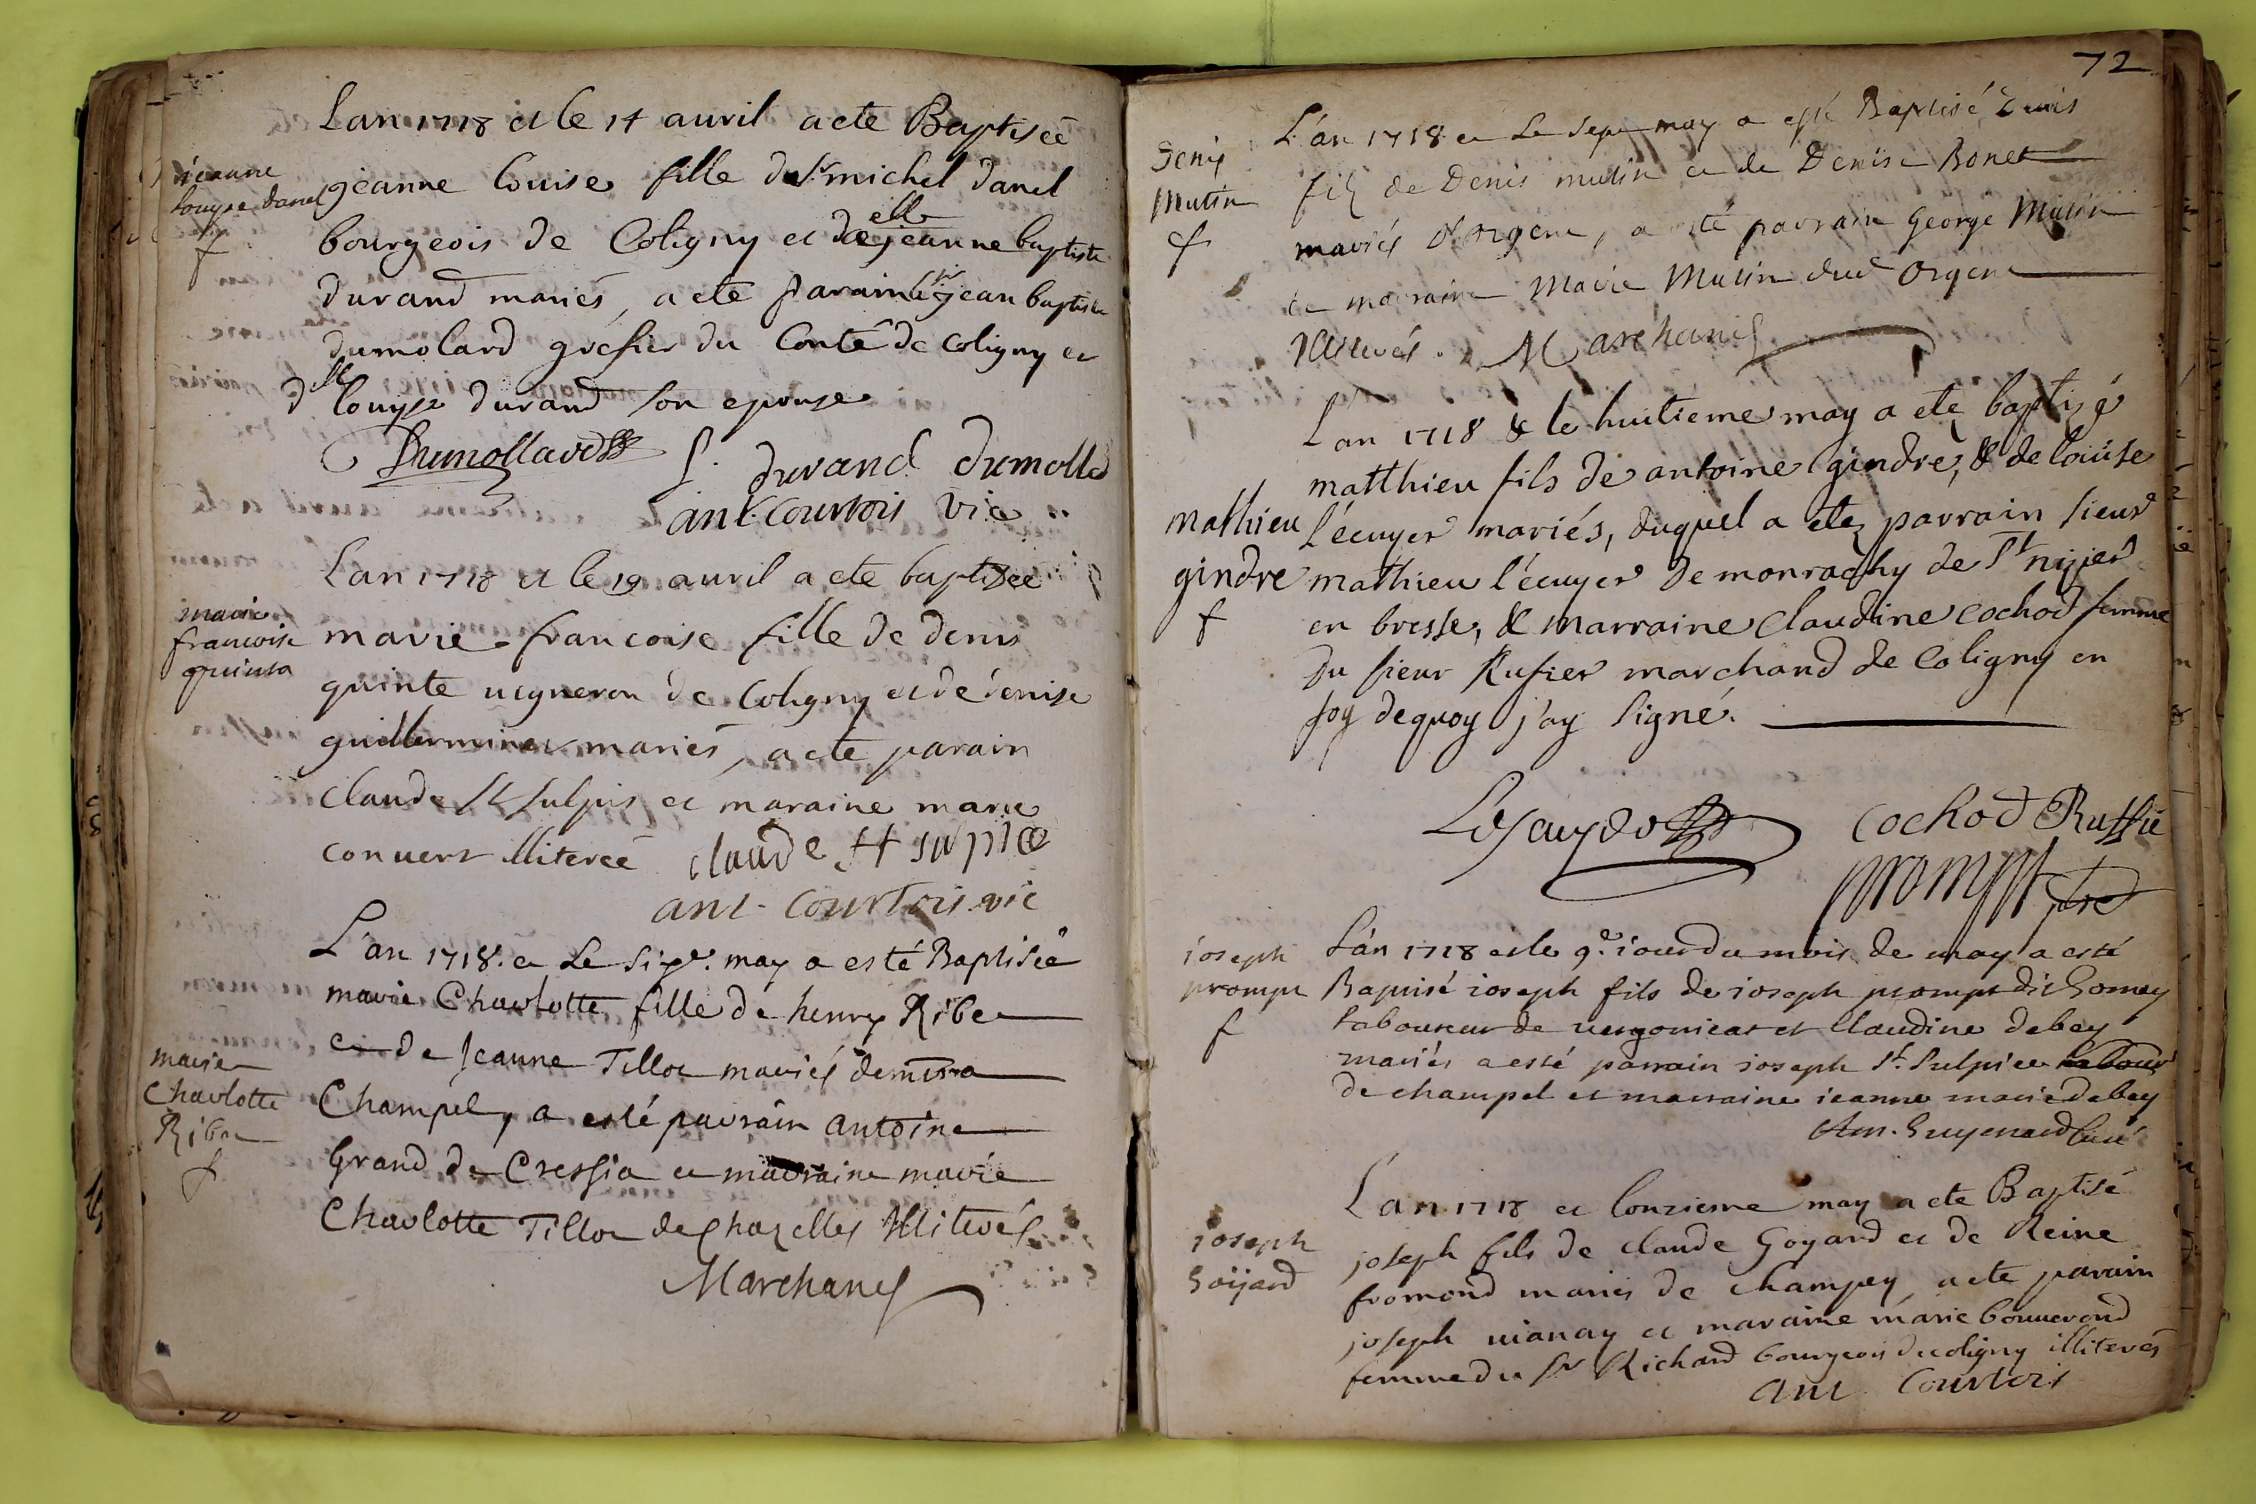 Lan 1718 et le 14 auril a ete Baptiseé
jeanne
louyse danel
f
jeanne louise fille du Sr michel danel
bourgeois de Coligny et de elle jeanne baptiste
durand mariés, a ete parain le sr jean baptiste
dumolard grefier du Conté de Coligny et
dlle louyse durand son epouse
Dumollard L. durand dumollard
ant. Courtois vic
Lan 1718 et le 19 auril a ete baptiseé
marie
francoise
quinta
marie francoise fille de denis
quinte uigneron de Coligny et de denise
guillerminet mariés, a ete parain
claude St sulpis et maraine marie
conuert illitereé claude st supice
ant. Courtois vic
L'an 1718. et Le sixe. may a esté Baptisée
marie Charlotte fille de henry Ribet
et de Jeanne Tillot mariés demts a
marie
Charlotte
Ribet
f
Champel, a esté parrain antoine
Grand de Cressia et marraine marie
Charlotte Tillot de Chazelles Illiterés
Marchand
72
L'an 1718 et Le sept may a esté Baptisé Denis
Denis
Mutin
f
fils de Denis mutin et de Denise Bonet
mariés d'orgent, a esté parrain George Mutin
et marraine Marie Mutin dud orgent
Illiterés. Marchand
L'an 1718 & le huitieme may a eté baptisé
matthieu fils de antoine gindre, & de loüise
mathieu
gindre
f
l'écuyer mariés, duquel a eté parrain sieur
mathieu l'écuyer de monrachy de St nizier
en bresse, & marraine claudine cochod femme
du sieur Rufier marchand de Coligny en
foy dequoy j'ay signé.
Cochod Ruffie
prompt ptre
joseph
prompt
f
L'an 1718 et le 9e. iour du mois de may a esté
Baptisé ioseph fils de ioseph prompt dit Gomay
laboureur de uergonicat et Claudine debey
mariés a esté parrain ioseph St. Sulpice labour
de champel et marraine ieanne marie debey
Ant. Guyenard Curé
L'an 1718 et lonzieme may a ete Baptisé
ioseph
Goijard
joseph fils de claude Goyard et de Reine
fromond mariés de champey, a ete parain
joseph uianay et maraine marie bouuerond
femme du Sr Richard bourgeois de coligny illiterés
ant Courtois